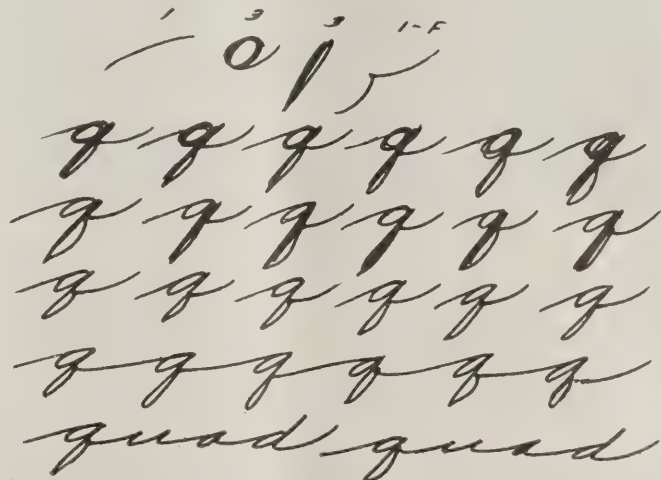 1 3 3 1-F
q q q q q q
q q q q q q
q q q q q q
q q q q q q
quad quad